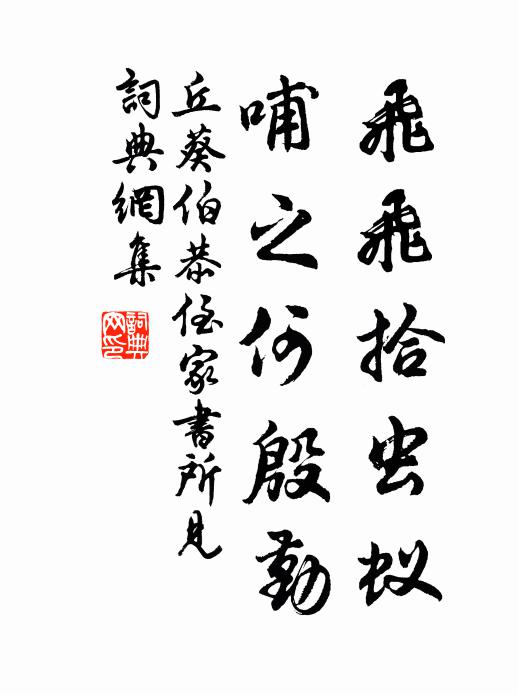 飛飛拾虫蚁
哺之何殷勤
丘葵伯恭侄家書所見
詞典網集
詞典網印